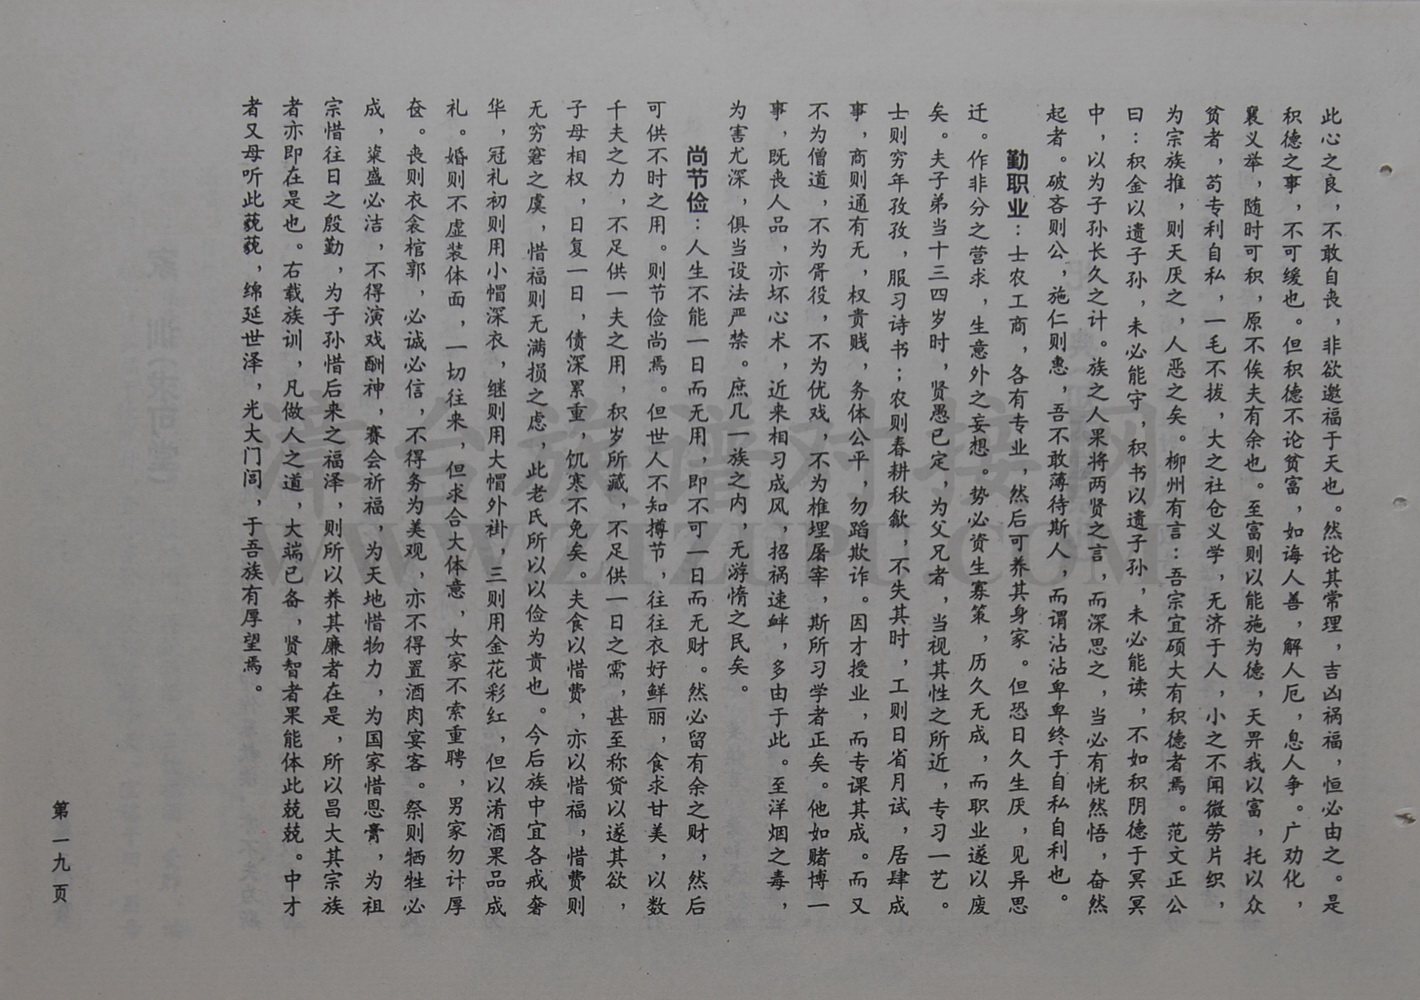 此心之良，不敢自丧，非欲邀福于天也。然论其常理，吉凶祸福，恒必由之。是
积德之事，不可缓也。但积德不论贫富，如诲人善，解人厄，息人争。广劝化，
襄义举，随时可积，原不俟夫有余也。至富则以能施为德，天畀我以富，托以众
贫者，苟专利自私，一毛不拔，大之社仓义学，无济于人，小之不闻微劳片织，
为宗族推，则天厌之，人恶之矣。柳州有言：吾宗宜硕大有积德者焉。范文正公
曰：积金以遗子孙，未必能守，积书以遗子孙，未必能读，不如积阴德于冥冥
中，以为子孙长久之计。族之人果将两贤之言，而深思之，当必有恍然悟，奋然
起者。破吝则公，施仁则惠，吾不敢薄待斯人，而谓沾沾卑卑终于自私自利也。
勤职业：士农工商，各有专业，然后可养其身家。但恐日久生厌，见异思
迁。作非分之营求，生意外之妄想。势必资生寡策，历久无成，而职业遂以废
矣。夫子弟当十三四岁时，贤愚已定，为父兄者，当视其性之所近，专习一艺。
士则穷年孜孜，服习诗书；农则春耕秋歛，不失其时，工则日省月试，居肆成
事，商则通有无，权贵贱，务体公平，勿蹈欺诈。因才授业，而专课其成。而又
不为僧道，不为胥役，不为优戏，不为椎埋屠宰，斯所习学者正矣。他如赌博一
事，既丧人品，亦坏心术，近来相习成风，招祸速衅，多由于此。至洋烟之毒，
为害尤深，俱当设法严禁。庶几一族之内，无游惰之民矣。
尚节俭：人生不能一日而无用，即不可一日而无财。然必留有余之财，然后
可供不时之用。则节俭尚焉。但世人不知撙节，往往衣好鲜丽，食求甘美，以数
千夫之力，不足供一夫之用，积岁所藏，不足供一日之需，甚至称贷以遂其欲，
子母相权，日复一日，债深累重，饥寒不免矣。夫食以惜费，亦以惜福，惜费则
无穷窘之虞，惜福则无满损之虑，此老氏所以以俭为贵也。今后族中宜各戒奢
华，冠礼初则用小帽深衣，继则用大帽外褂，三则用金花彩红，但以淆酒果品成
礼。婚则不虚装体面，一切往来，但求合大体意，女家不索重聘，男家勿计厚
奁。丧则衣衾棺郭，必诚必信，不得务为美观，亦不得置酒肉宴客。祭则牺牲必
成，粢盛必洁，不得演戏酬神，赛会祈福，为天地惜物力，为国家惜恩膏，为祖
宗惜往日之殷勤，为子孙惜后来之福泽，则所以养其廉者在是，所以昌大其宗族
者亦即在是也。右载族训，凡做人之道，大端已备，贤智者果能体此兢兢。中才
者又毋听此藐藐，绵延世泽，光大门闾，于吾族有厚望焉。
第一九页
漳台族谱对接网
WWW.ZIZUPU.COM